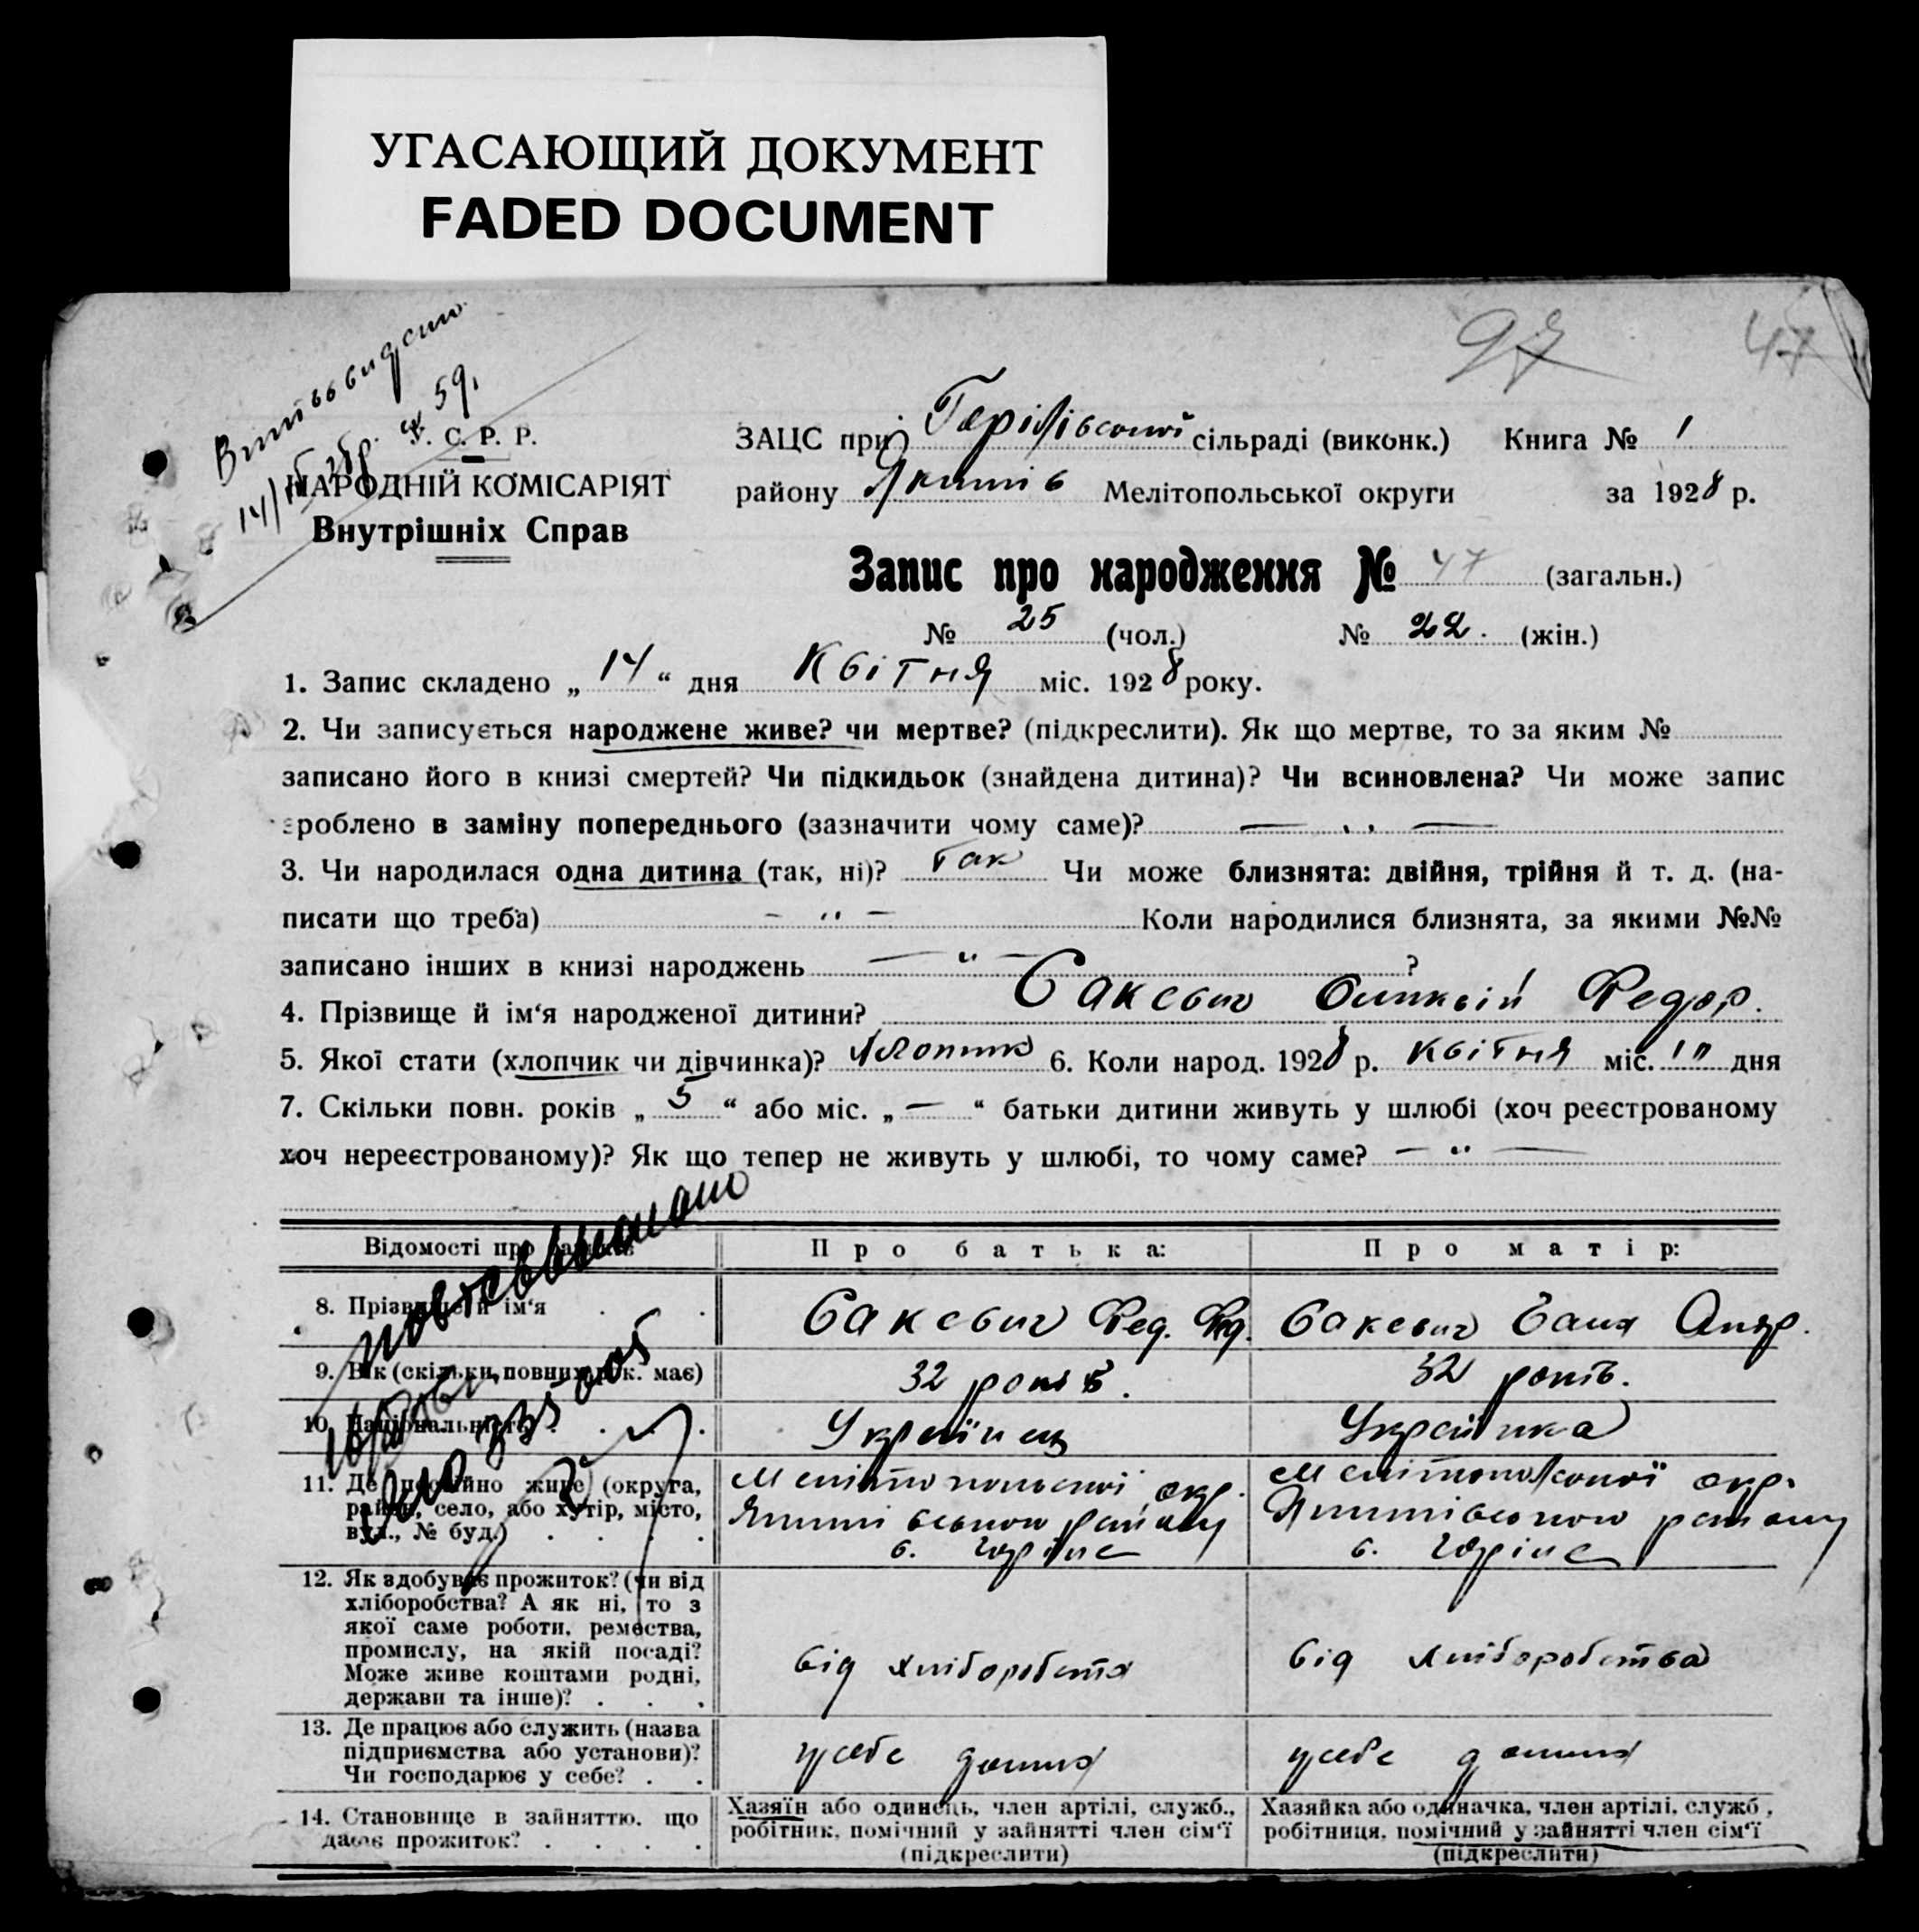 УГАСАЮЩИЙ ДОКУМЕНТ
FADED DOCUMENT
97 47
59.
У. С. Р. Р.
НАРОДНІЙ КОМІСАРІЯТ
Внутрішніх Справ
ЗАЦС при сільраді (виконк.) Книга № 1
району Якимів Мелітопольської округи за 1928 р.
Запис про народження № 47 (загальн.)
№ 25 (чол.) № 22. (жін.)
1. Запис складено „ 14 “ дня Квітня міс. 1928 року.
2. Чи записується народжене живе? чи мертве? (підкреслити). Як що мертве, то за яким №
записано його в книзі смертей? Чи підкидьок (знайдена дитина)? Чи всиновлена? Чи може запис
зроблено в заміну попереднього (зазначити чому саме)? — „ —
3. Чи народилася одна дитина (так, ні)? Так Чи може близнята: двійня, трійня й т. д. (на-
писати що треба) — „ — Коли народилися близнята, за якими №№
записано інших в книзі народжень — „ — ?
4. Прізвище й ім‘я народженої дитини? Сакевич Федор.
5. Якої стати (хлопчик чи дівчинка)? Хлопчик 6. Коли народ. 1928 р. Квітня міс. дня
7. Скільки повн. років „ 5 “ або міс. „ — “ батьки дитини живуть у шлюбі (хоч реєстрованому
хоч нереєстрованому)? Як що тепер не живуть у шлюбі, то чому саме? — „ —
Відомості про батьків Про батька: Про матір:
8. Прізвище й ім‘я Сакевич Фед. Фед. Сакевич Андр.
9. Вік (скільки повних рок. має) 32 років. 32 років.
10. Національність Українец Українка
11. Де постійно живе (округа, район, село, або хутір, місто, вул., № буд.)
Мелітопольскої окр. Мелітопольскої окр.
Якимівського району Якимівського району
с. с.
12. Як здобуває прожиток? (чи від
хліборобства? А як ні, то з
якої саме роботи, ремества,
промислу, на якій посаді?
Може живе коштами родні,
держави та інше)?
від хліборобства від хліборобства
13. Де працює або служить (назва
підприємства або установи)?
Чи господарює у себе?
у себе дома у себе дома
14. Становище в зайняттю, що
дає прожиток?
Хазяїн або одинець, член артілі, служб.,
робітник, помічний у зайнятті член сім‘ї
(підкреслити)
Хазяйка або одиначка, член артілі, служб.,
робітниця, помічний у зайнятті член сім‘ї
(підкреслити)